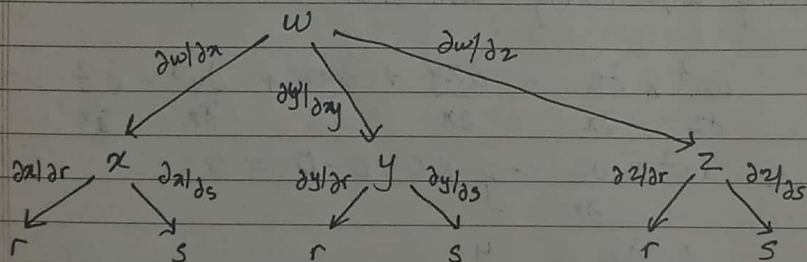 w
∂w/∂x ∂y/∂xy ∂w/∂z
x y z
∂x/∂r ∂x/∂s ∂y/∂r ∂y/∂s ∂z/∂r ∂z/∂s
r s r s r s